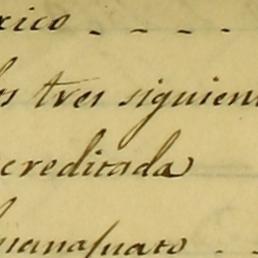 xico - - - -
los tres siguien
creditada
uanajuato - -